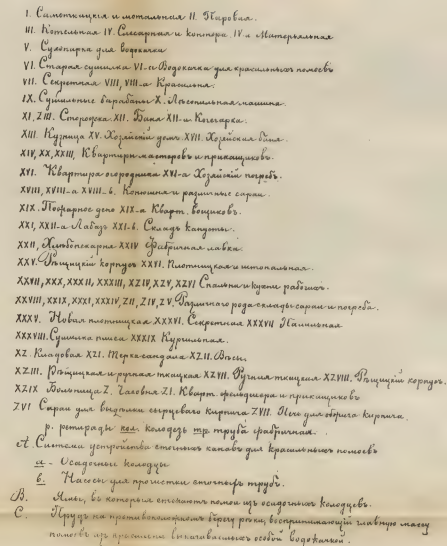 I. Самоткацкая и мотальная II. Паровая.
III. Котельная IV. Слесарная и контора IV-а Материальная
V. Сукопарка для водокачки
VI. Старая сушилка VI-а Водокачка для красильныхъ помоевъ
VII. Секретная VIII, VIII-а Красильня.
IX. Сушильные барабаны X. Лѣсопильная машина.
XI, ZIII. Сторожка XII. Баня XII-а Кочегарка.
XIII. Кузница XV. Хозяйскій домъ. XVII. Хозяйская баня.
XIV, XX, XXIII, Квартиры мастеровъ и прикащиковъ.
XVI. Квартира огородника XVI-а Хозяйскій погребъ.
XVIII, XVIII-а XVIII-б. Конюшня и различные сараи
XIX. Пожарное депо XIX-а Кварт. возчиковъ.
XXI, XXII-а Лабазъ XXI-б. Складъ
XXII, Хлѣбопекарня XXIV Фабричная лавка.
XXV. корпусъ XXVI. Плотницкая и шпопальная.
XXVII, XXX, XXXII, XXXIII, XZIV, XZV, XZVI Спальни и кухни рабочихъ.
XXVIII, XXIX, XXXI, XXXIV, ZII, ZIV, ZV. Различнаго рода склады сараи и погреба.
XXXV. Новая плотницкая XXXVI. Секретная XXXVII
XXXVIII. Сушилка XXXIX Курильная.
XZ. Кладовая XZI. Терка сандала XZII. Вѣсы.
XZIII. и ручная ткацкая XZVII. Ручная ткацкая XZVIII. корпусъ.
XZIX Больница Z. Часовня ZI. Кварт. фельдшера и прикащиковъ
ZVI Сараи для выдѣлки сырцеваго кирпича ZVII. Печь для обжига кирпича.
р. ретирады кол. колодезь тр. труба фабричная.
А. Система устройства сточныхъ канавъ для красильныхъ помоевъ
а - Осадочные колодцы
в. Насосы для прочистки сточныхъ трубъ.
В. Ямы, въ которыя стекаютъ помои изъ осадочныхъ колодцевъ.
С. Прудъ на противоположномъ берегу рѣки, воспринимающій главную массу
помоевъ изъ особой водокачкой.